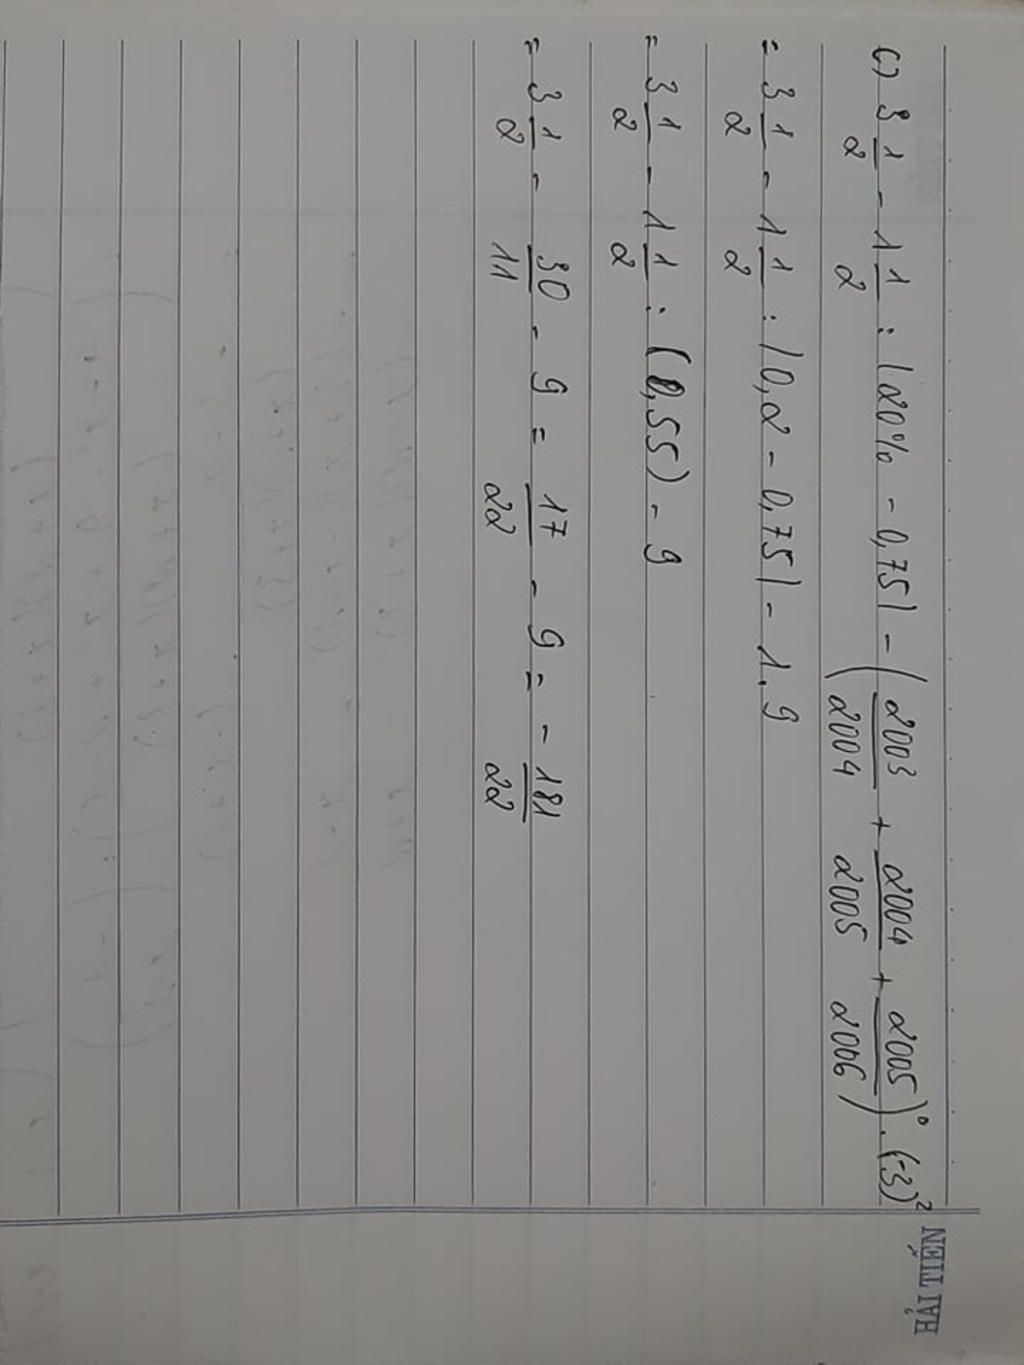 c) 3 1/2 - 1 1/2 : |20% - 0,75| - (2003/2004 + 2004/2005 + 2005/2006)⁰ . (-3)²
= 3 1/2 - 1 1/2 : |0,2 - 0,75| - 1.9
= 3 1/2 - 1 1/2 : (0,55) - 9
= 3 1/2 - 30/11 - 9 = 17/22 - 9 = - 181/22
HẢI TIẾN